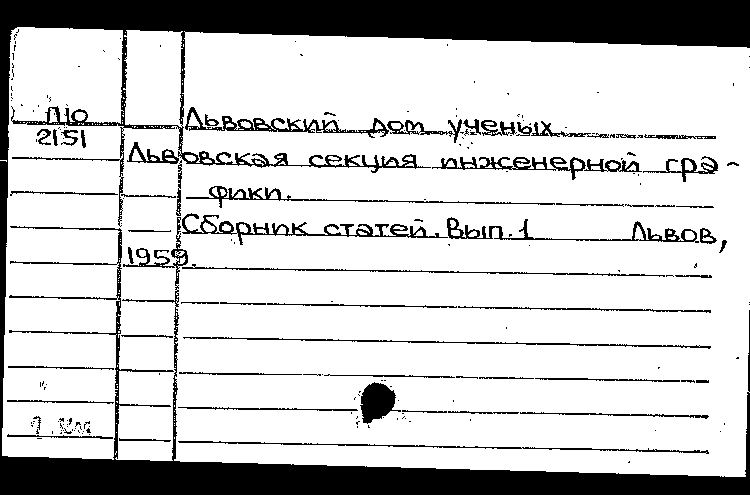 П10
2151
Львовский дом ученых.
Львовская секция инженерной гра-
фики.
Сборник статей. Вып. 1 Львов,
1959.